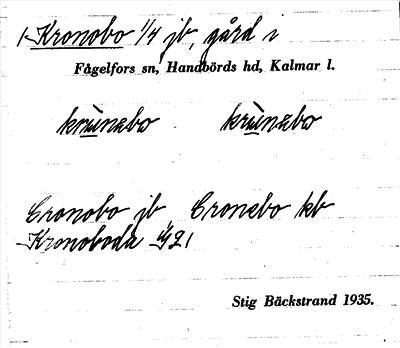 1 Kronobo 1/4 jb, gård i
Fågelfors sn, Handbörds hd, Kalmar l.
krùnebo krùnebo
Cronobo jb, Cronebo kb
Kronoboda
Stig Bäckstrand 1935.